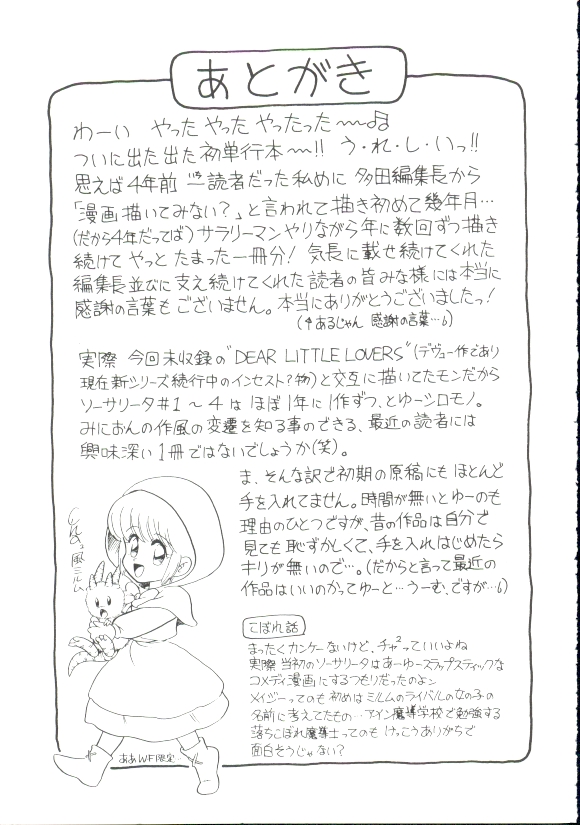 あとがき
わーい やった やった やったった〜〜♫
ついに出た出た初単行本〜〜!! う・れ・し・いっ!!
思えば4年前 一読者だった私めに 多田編集長から
「漫画描いてみない?」と言われて描き初めて幾年月…
(だから4年だってば)サラリーマンやりながら年に数回ずつ描き
続けて やっと たまった一冊分! 気長に載せ続けてくれた
編集長並びに支え続けてくれた読者の皆みな様には本当に
感謝の言葉もございません。本当にありがとうございましたっ!
(↑あるじゃん 感謝の言葉…6)
実際 今回未収録の"DEAR LITTLE LOVERS"(デヴュー作であり
現在新シリーズ続行中のインセスト?物)と交互に描いてたモンだから
ソーサリータ#1〜4は ほぼ1年に1作ずつ、とゆーシロモノ。
みにおんの作風の変遷を知る事のできる、最近の読者には
興味深い1冊ではないでしょうか(笑)。
ま、そんな訳で初期の原稿にも ほとんど
手を入れてません。時間が無いとゆーのも
理由のひとつですが、昔の作品は自分で
見ても恥ずかしくて、手を入れはじめたら
キリが無いので…。(だからと言って最近の
作品はいいのかってゆーと…うーむ、ですが…6)
風ミルム
こぼれ話
まったくカンケーないけど、チャ²っていいよね
実際 当初のソーサリータはあーゆースラップスティックな
コメディ漫画にするつもりだったのよン
メイジーってのも 初めは ミルムのライバルの女の子の
名前に考えてたもの…アイン魔導学校で勉強する
落ちこぼれ魔導士ってのも けっこうありがちで
面白そうじゃない?
ああWF限定…